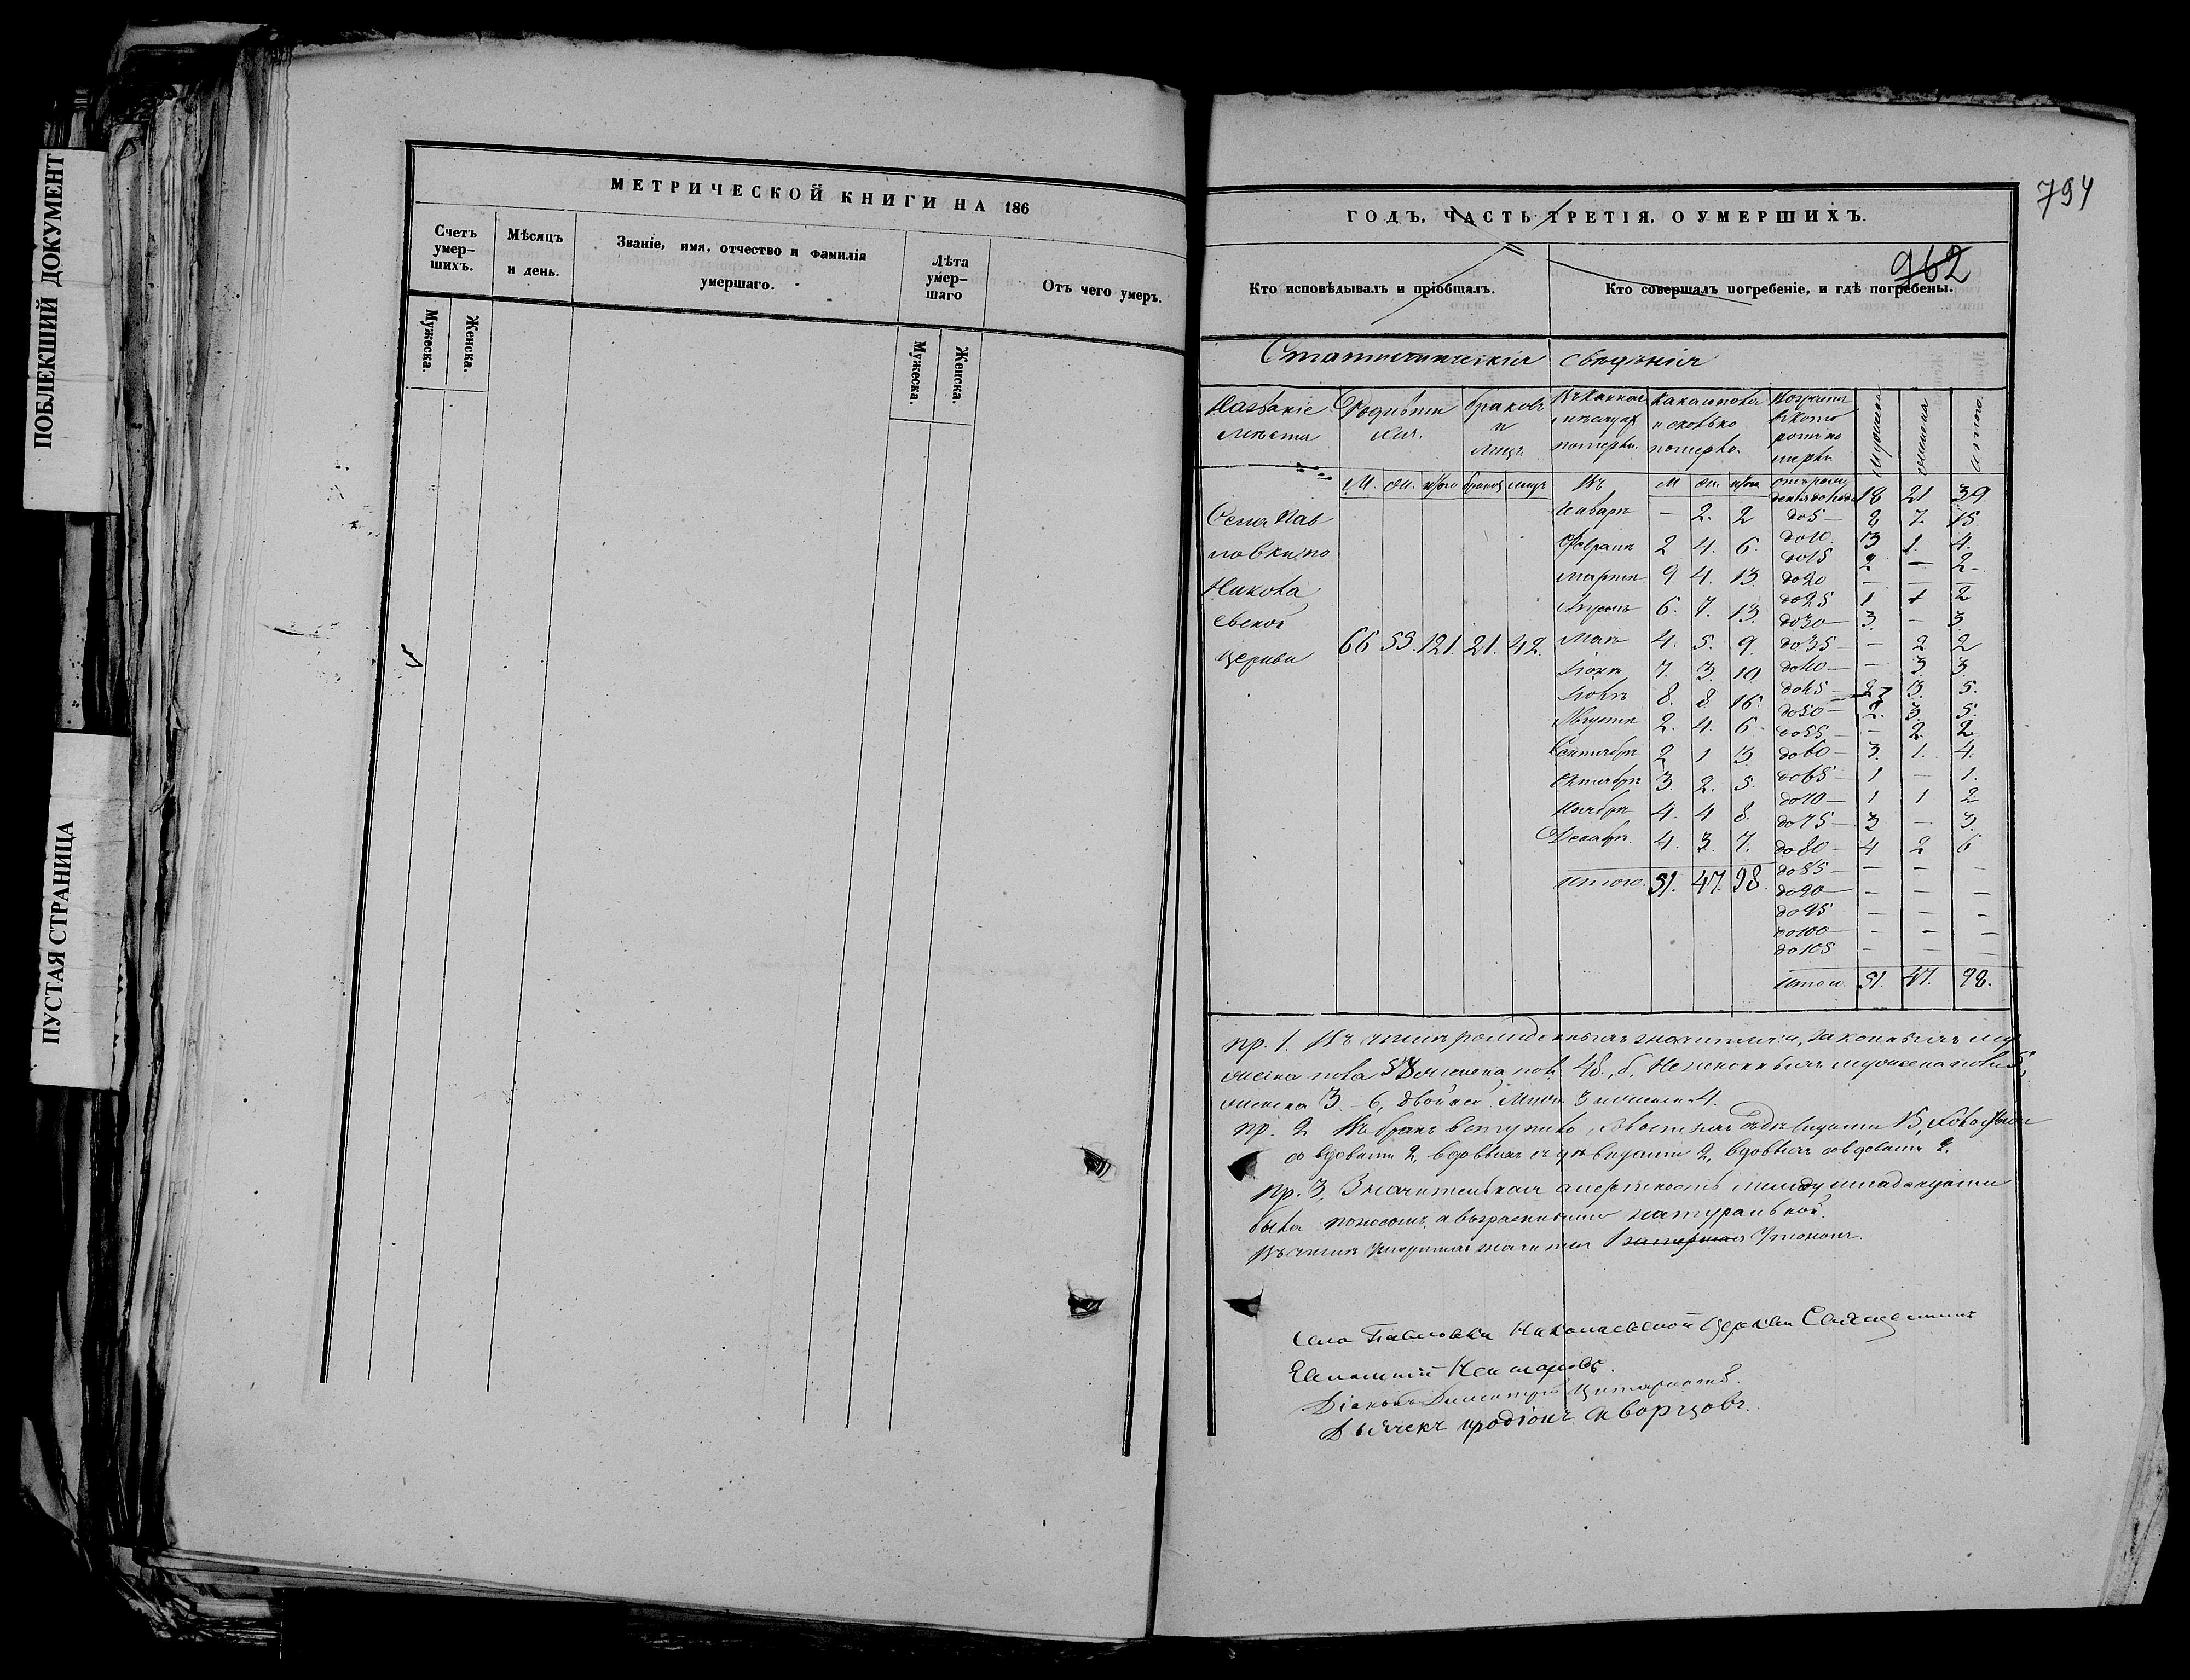 ПОБЛЕКШИЙ ДОКУМЕНТ
ПУСТАЯ СТРАНИЦА
МЕТРИЧЕСКОЙ КНИГИ НА 186
Счетъ умер-шихъ.
Мужеска.
Женска.
Мѣсяцъ и день.
Званіе, имя, отчество и фамилія умершаго.
Лѣта умер-шаго
Мужеска.
Женска.
Отъ чего умеръ.
794
ГОДЪ, ЧАСТЬ ТРЕТІЯ, О УМЕРШИХЪ.
962
Кто исповѣдывалъ и пріобщалъ.
Кто совершалъ погребеніе, и гдѣ погребены.
Статистическія свѣденія
Названіе мѣста
Родив
браковъ и лицъ
какаго пола и сколько померло.
мужеска
женска
итого
М. жи. итого браков лицъ
Въ М жи. итого
18 21 39
Села Павловки по Николаевской церкви
66 55. 121. 21. 42.
Январѣ — 2. 2
Февралѣ 2 4. 6.
Мартѣ 9 4. 13.
Апрелѣ 6. 7. 13.
Маѣ 4. 5. 9.
Іюнѣ 7. 3. 10
Іюлѣ 8. 8. 16.
Августѣ 2. 4. 6
Сентябрѣ 2 1 3
Октябрѣ 3. 2. 5.
Ноябрѣ 4. 4 8.
Декабрѣ. 4. 3. 7.
Итого. 51. 47. 98.
до 5 — 8 7. 15
до 10. 3 1. 4.
до 15 2 — 2
до 20 — — —
до 25 1 1 2
до 30 — 3. — 3.
до 35 — — 2 2
до 40 — — 3. 3.
до 45 — 2 3. 5.
до 50 — 2. 3. 5.
до 55 — — 2. 2
до 60 — 3. 1. 4.
до 65 — 1 — 1.
до 70 — 1 1 2
до 75 — 3 — 3.
до 80 — 4 2 6
до 85 — — — —
до 90 — — — —
до 95 — — —
до 100 — — — —
до 105 — — —
Итого 51. 47. 98.
пр. 1. Въ числѣ рожденныхъ значится: а, законныхъ му
жеска пола женска пол. 48., б, Незаконныхъ мужеска пола
женска 3. — 6, двойней
пр. 2 Въ бракъ вступило, холостыхъ съ дѣвицами 15,
со вдовами 2, вдовыхъ съ дѣвицами 2, вдовыхъ со вдовами 2.
пр. 3, Значительная смертность между младенцами
была поносомъ, а взрослыми натуральной.
Въ числѣ умершихъ значится 1
Села Павловки Николаевской Церкви Священникъ
Евгеній
Діаконъ Димитрій
Дьячекъ Иродіонъ Скворцовъ.